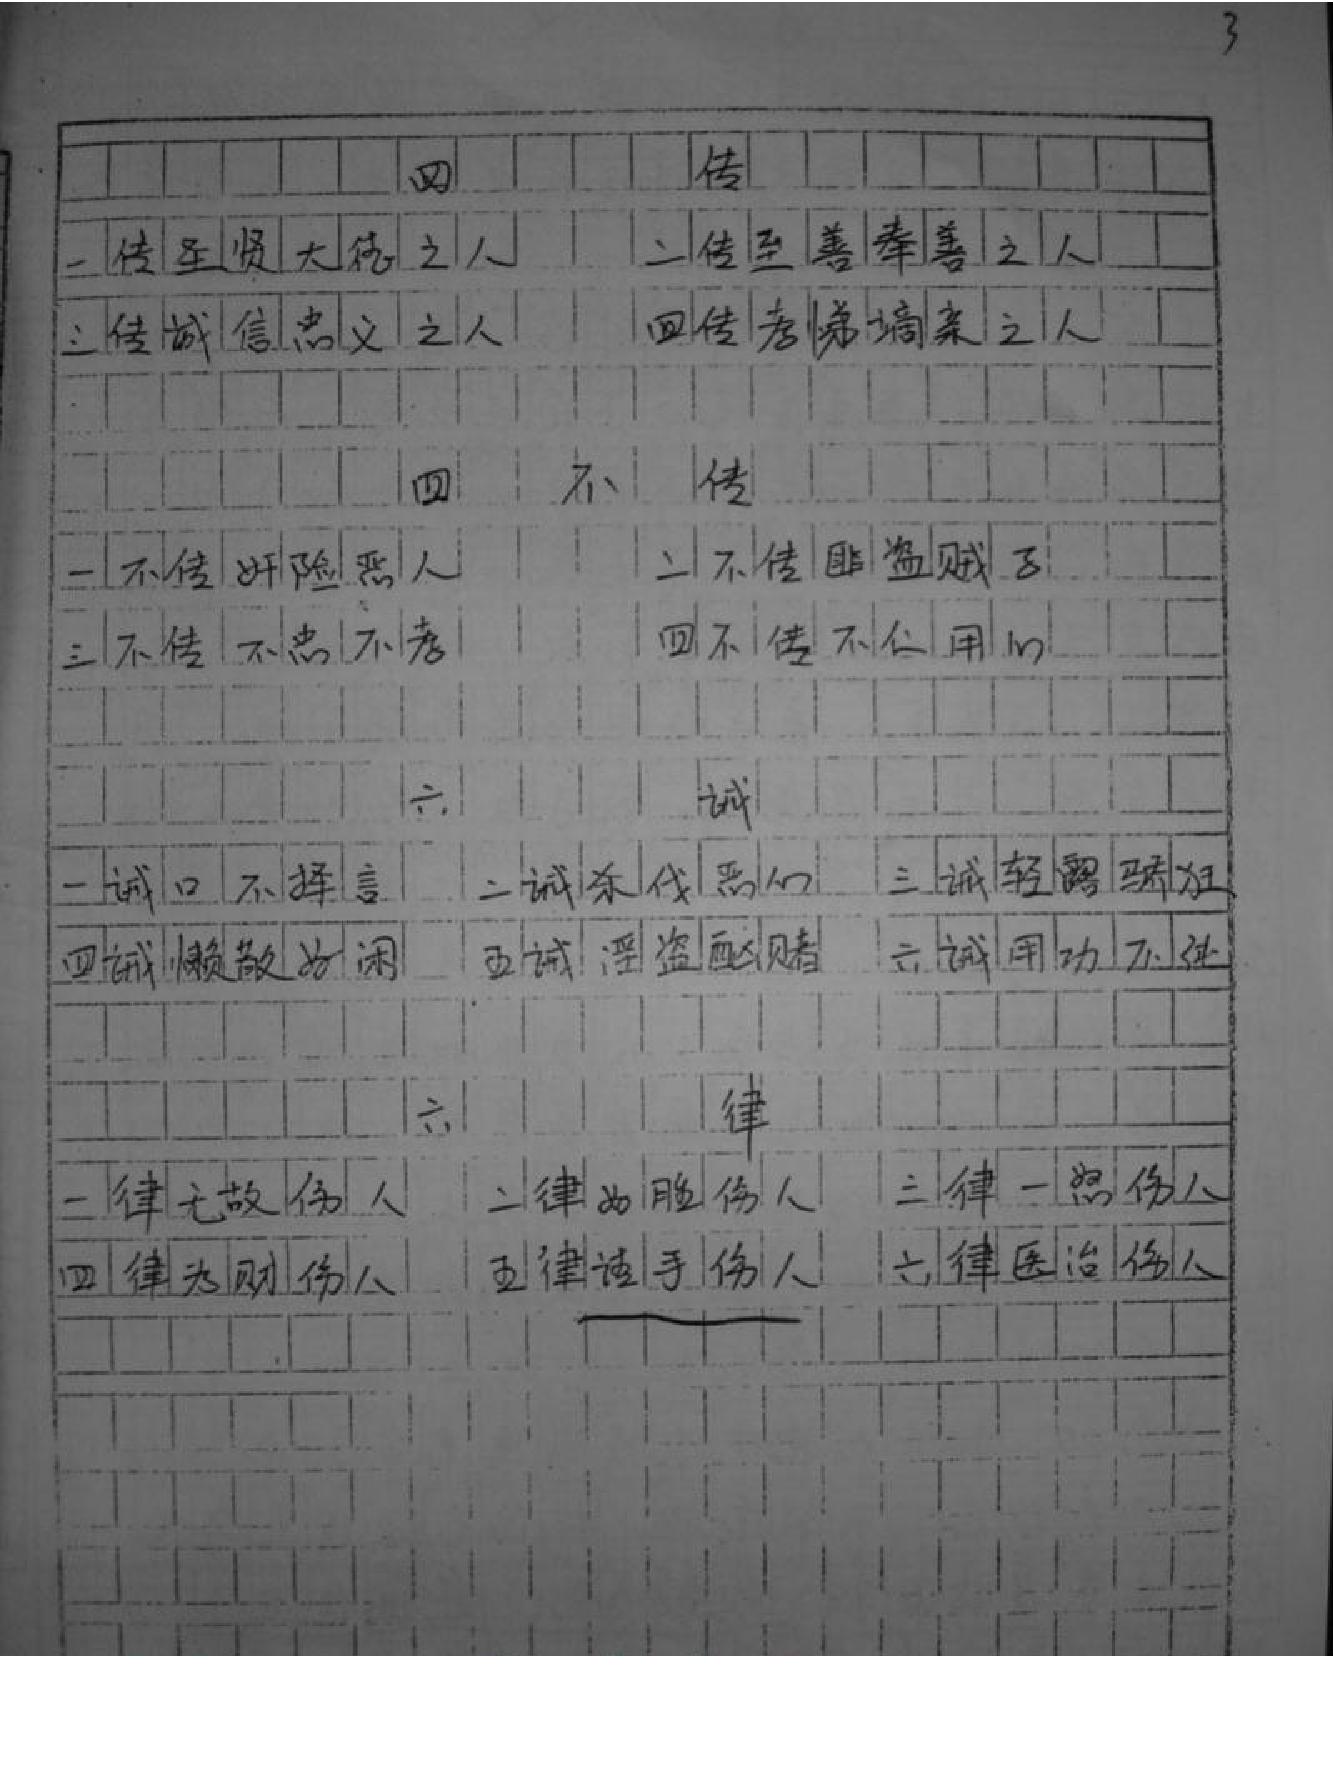 3
四 传
一传圣贤大德之人 二传至善奉善之人
三传诚信忠义之人 四传孝悌嫡亲之人
四 不 传
一不传奸险恶人 二不传匪盗贼子
三不传不忠不孝 四不传不仁用心
六 诫
一诫口不择言 二诫杀伐恶心 三诫轻露骄狂
四诫懒散好闲 五诫淫盗酗赌 六诫用功不
六 律
一律无故伤人 二律好胜伤人 三律一怒伤人
四律为财伤人 五律手伤人 六律医治伤人